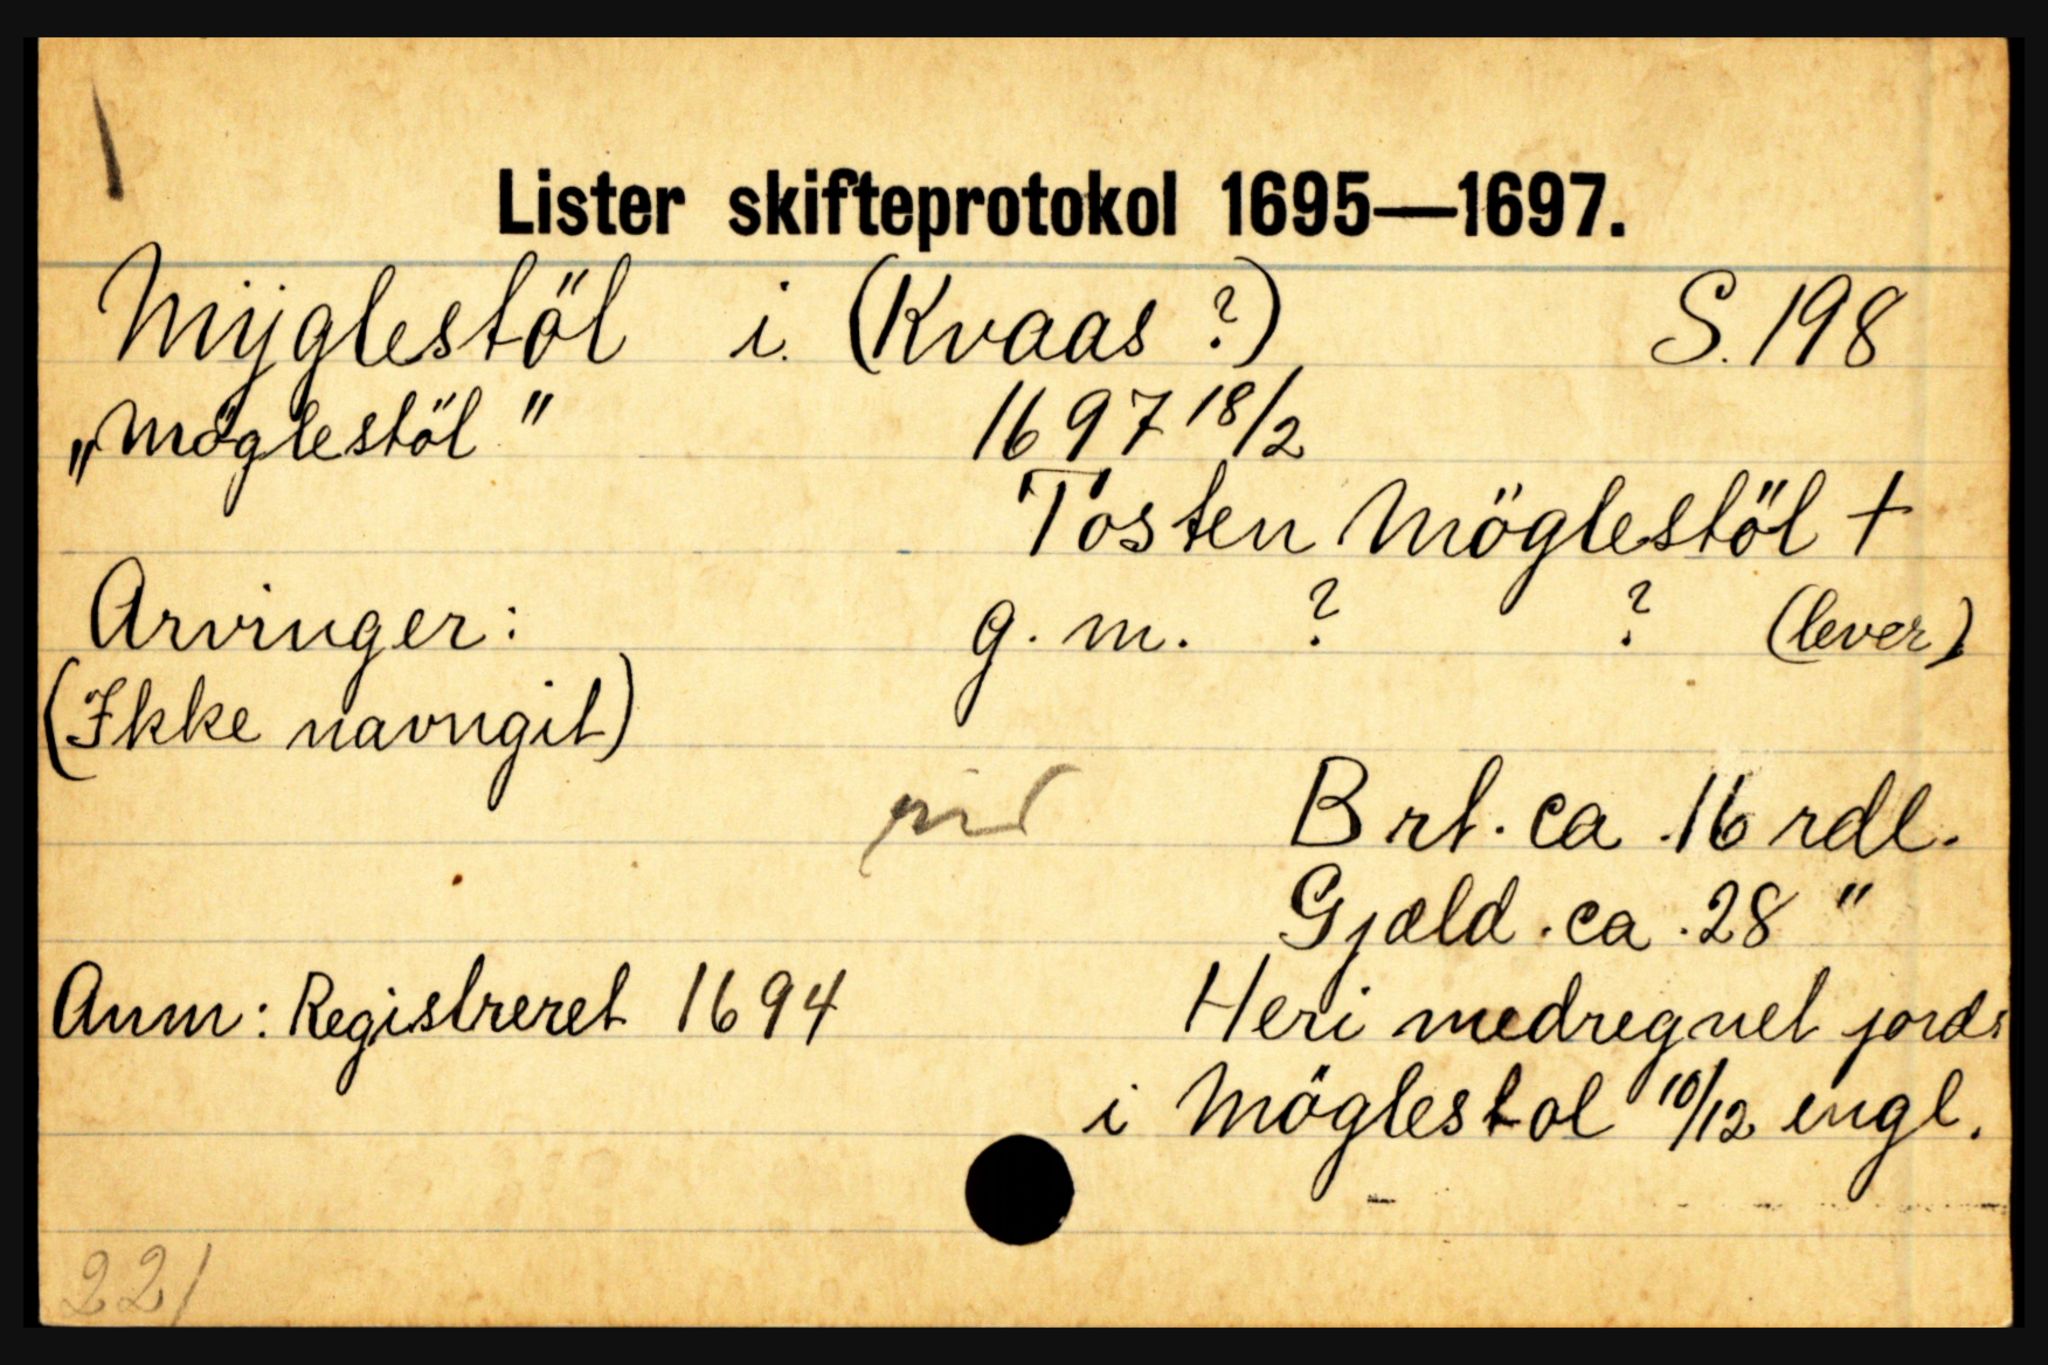 Lister skifteprotokol 1695—1697.
Myglestöl i. (Kvaas ?) S. 198
„Möglestöl" 1697 18/2
Tosten Möglestöl +
Arvinger: g. m. ? ? (lever)
(Ikke navngit)
Brt. ca. 16 rdl.
Gjæld. ca. 28 "
Anm: Registreret 1694 Heri medregnet jords
i Möglestol 10/12 engl.
221